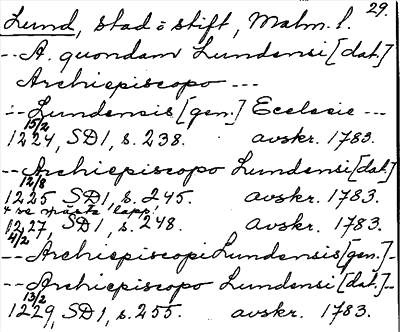 29.
Lund, stad o stift, Malm. l.
-- A. quondam Lundensi [dat.]
Archiepiscopo ---
-- Lundensis [gen.] Ecclesie ---
15/2
1224, SD1, s. 238. avskr. 1783.
-- Archiepiscopo Lundensi [dat.]
12/8
1225 SD1, s. 245. avskr. 1783.
+ se nästa lapp!
1227, SD1, s. 248. avskr. 1783.
4/2
-- Archiepiscopi Lundensis [gen.] -
-- Archiepiscopo Lundensi [dat.] -
13/2
1229, SD1, s. 255. avskr. 1783.